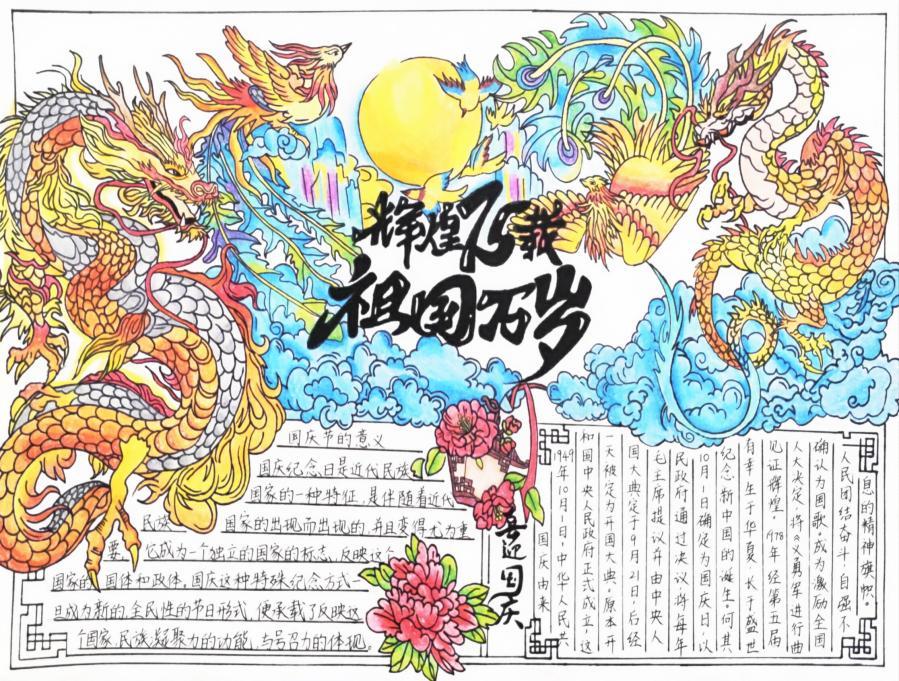 辉煌75载
祖国万岁
国庆节的意义
国庆纪念日是近代民族
国家的一种特征,是伴随着近代
民族国家的出现而出现的,并且变得尤为重
要,它成为一个独立的国家的标志,反映这个
国家的国体和政体。国庆这种特殊纪念方式一
旦成为新的、全民性的节日形式,便承载了反映这
个国家、民族凝聚力的功能,与号召力的体现。
喜迎国庆
国庆由来
1949年10月一日,中华人民共
和国中央人民政府正式成立,这
一天被定为开国大典。原本开
国大典定于9月21日,后经
毛主席提议并由中央人
民政府通过决议将每年
10月1日确定为国庆日,以
纪念新中国的诞生。何其
有幸生于华夏,长于盛世
见证辉煌。1978年经第五届
人大决定,将《义勇军进行曲
确认为国歌。成为激励全国
人民团结奋斗、自强不
息的精神旗帜。